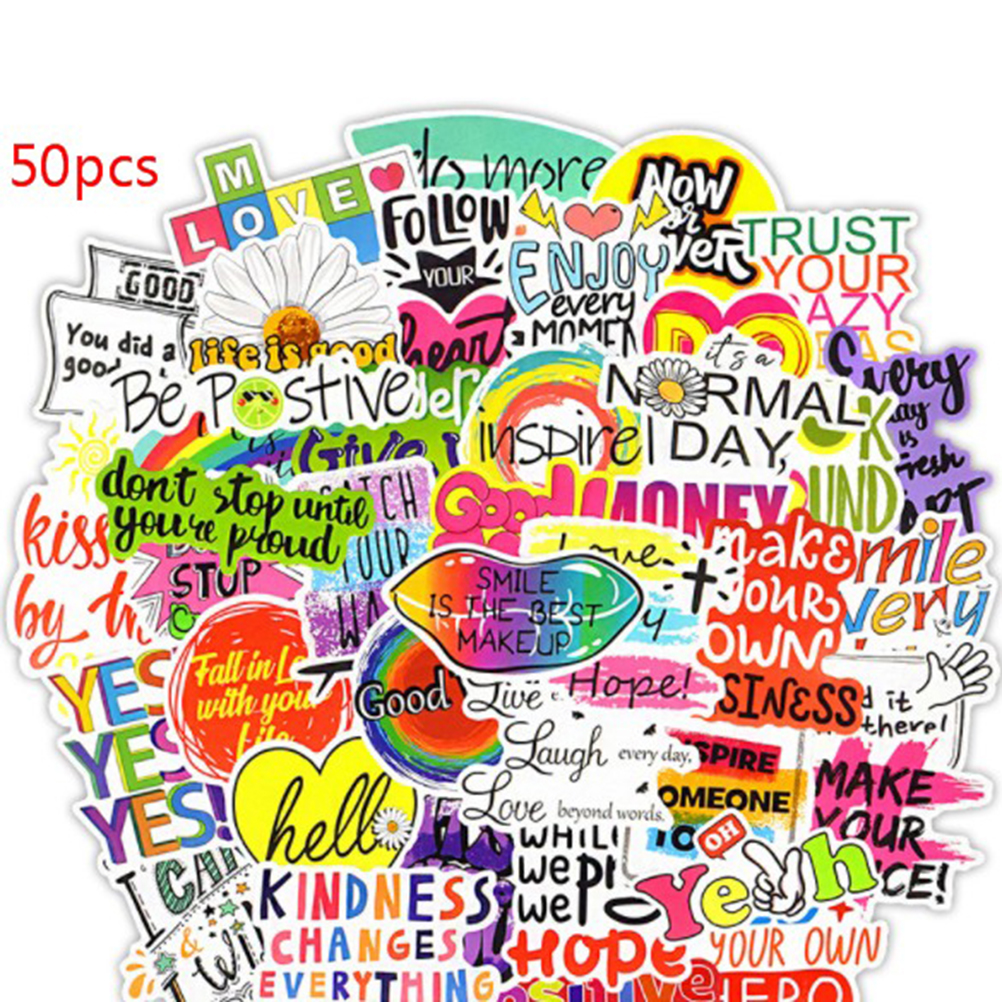 50pcs
M
LOVE
do more
NOW
or
FOLLOW
YOUR
heart
ENJOY
every
MOMEN
TRUST
YOUR
AZY
GOOD
You did a
good
life is good
it's a
NORMAL
DAY,
Every
day
is
fresh
Be Positive
inspire
Give
don't stop until
you're proud
Good
MONEY
UND
kiss
by
STOP
YOUR
Love
SMILE
IS THE BEST
MAKEUP
make
YOUR
OWN
SINESS
mile
very
YES
YES
YES!
Fall in Lo
with your
Life
Good
Live
Hope!
Laugh every day,
Love beyond words.
SPIRE
OMEONE
TO
d it
there!
MAKE
YOUR
CE!
hello
I CAN
& I Wi
WHILE
we
we
OH
Yeah
KINDNESS
CHANGES
EVERYTHING
HOPE
YOUR OWN
HERO